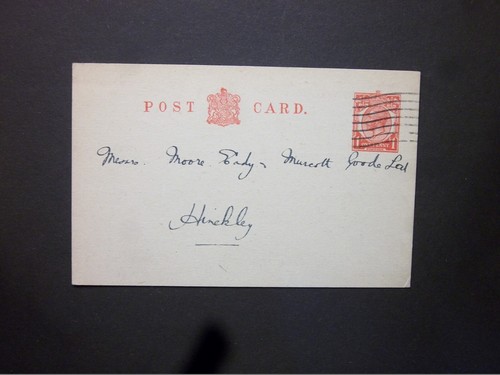 POST CARD.
Messrs. Moore, Eady & Murcott Goode Ltd
Hinckley